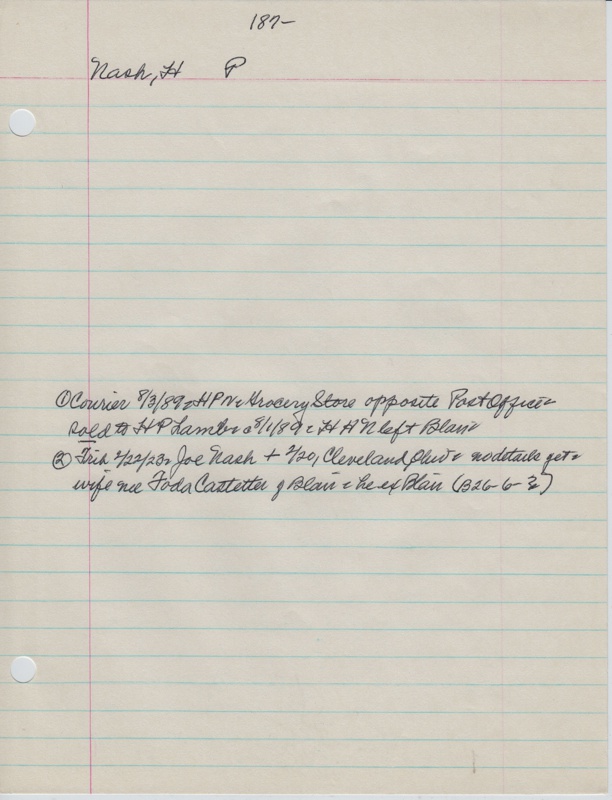 187-
Nash, H P
① Courier 8/3/89 = HPN = Grocery Store opposite Post Office =
sold to H P Lamb = 8/1/89 = H H N left Blair =
② Trib 2/22/23 = Joe Nash + 2/20, Cleveland, Ohio = no details yet =
wife nee Foda Castetter of Blair = he ex Blair (B26-6-3)